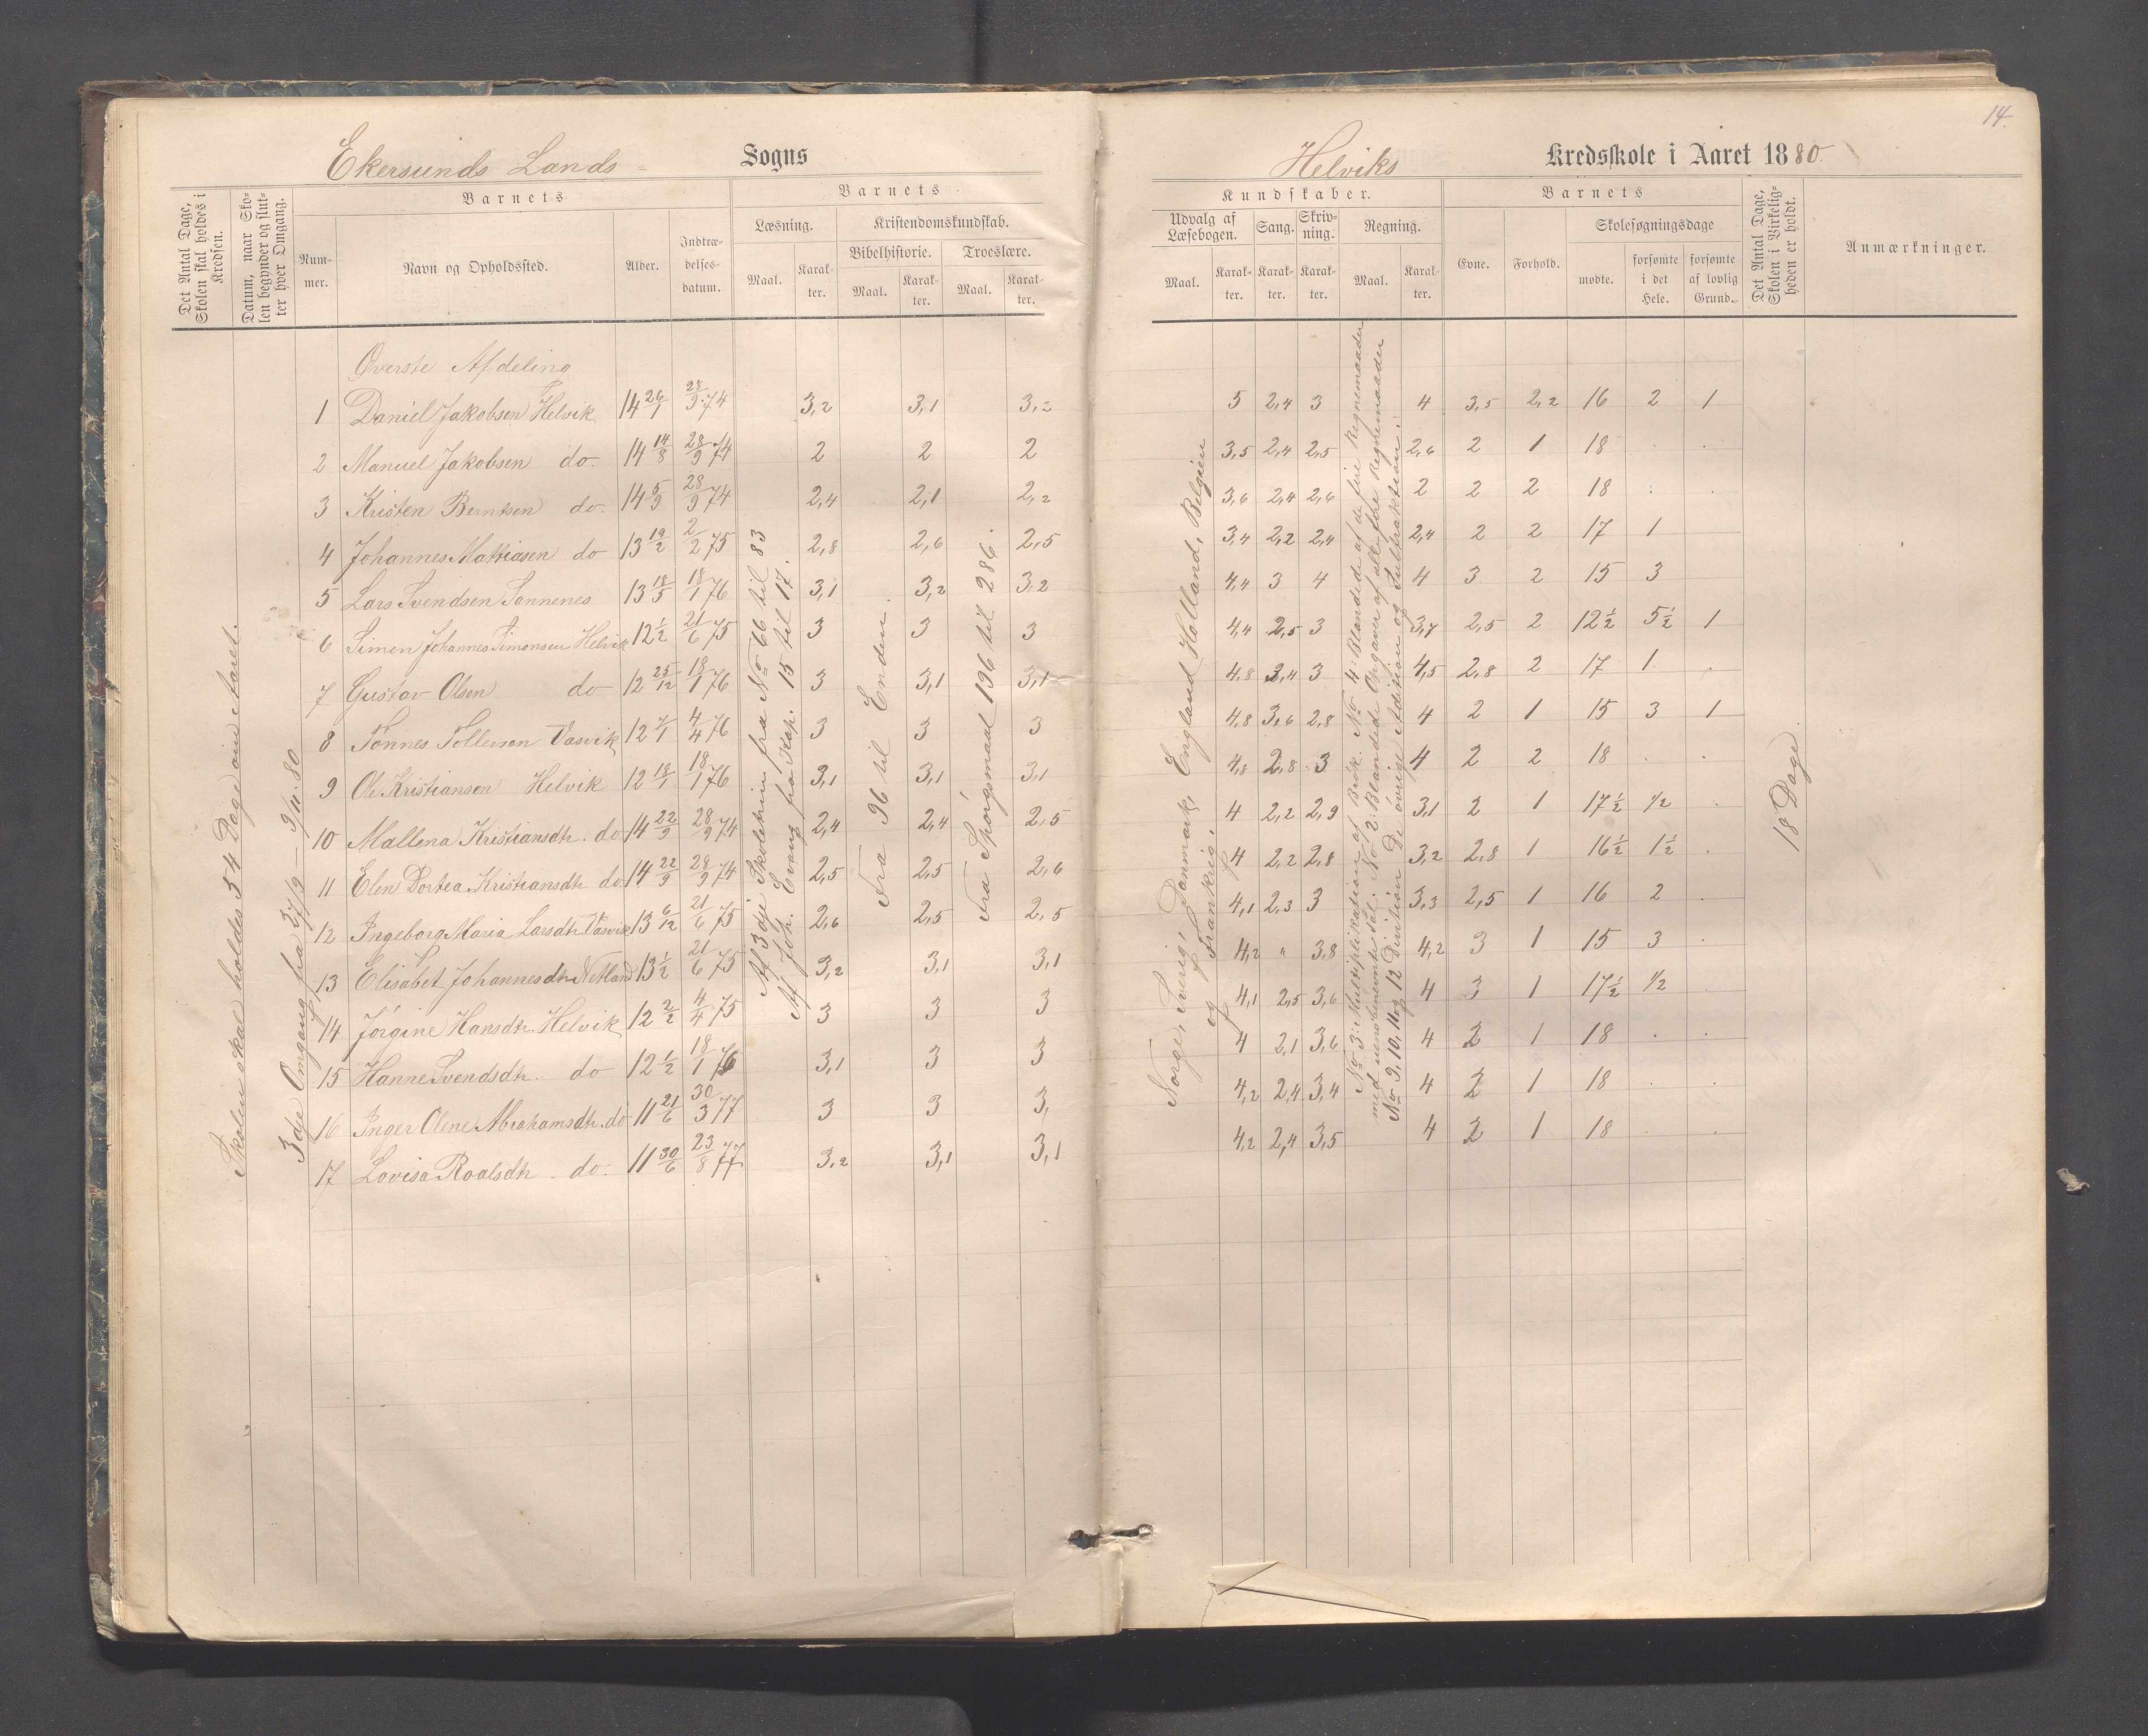 14.
Ekersunds Lands- Sogns
Helviks Kredsskole i Aaret 1880.
Det Antal Dage, Skolen skal holdes i Kredsen.
Datum, naar Skolen begynder og slutter hver Omgang.
Barnets
Nummer.
Navn og Opholdssted.
Alder.
Indtrædelsesdatum.
Barnets
Læsning.
Maal.
Karakter.
Kristendomskundskab.
Bibelhistorie.
Maal.
Karakter.
Troeslære.
Maal.
Karakter.
Kundskaber.
Udvalg af Læsebogen.
Maal.
Karakter.
Sang.
Karakter.
Skrivning.
Karakter.
Regning.
Maal.
Karakter.
Barnets
Evne.
Forhold.
Skolesøgningsdage
mødte.
forsømte i det Hele.
forsømte af lovlig Grund.
Det Antal Dage, Skolen i Virkeligheden er holdt.
Anmærkninger.
Skolen skal holdes 54 Dage om Aaret.
3dje Omgang fra 27/9 - 9/11.80
Øverste Afdeling
1 Daniel Jakobsen Helvik 14 26/1 28/9.74 3,2 3,1 3,2 5 2,4 3 4 3,5 2,2 16 2 1
2 Manuel Jakobsen do. 14 14/8 28/9 74 2 2 2 3,5 2,4 2,5 2,6 2 1 18 . .
3 Kristen Berntsen do. 14 5/9 28/9 74 2,4 2,1 2,2 3,6 2,4 2,6 2 2 2 18 . .
4 Johannes Mattiasen do 13 19/2 2/2 75 2,8 2,6 2,5 3,4 2,2 2,4 2,4 2 2 17 1
5 Lars Svendsen Sannenes 13 18/5 18/1 76 3,1 3,2 3,2 4,4 3 4 4 3 2 15 3
6 Simon Johannes Simonsen Helvik 12 1/2 21/6 75 3 3 3 4,4 2,5 3 3,7 2,5 2 12 1/2 5 1/2 1
7 Gustav Olsen do 12 25/12 18/1 76 3 3,1 3,1 4,8 2,4 3 4,5 2,8 2 17 1 .
8 Tønnes Tollesson Vasvik 12 7/1 4/4 76 3 3 3 4,8 3,6 2,8 4 2 1 15 3 1
9 Ole Kristiansen Helvik 12 18/1 18/1 76 3,1 3,1 3,1 4,8 2,8 3 4 2 2 18 . .
10 Mallena Kristiansdtr. do 14 22/9 28/9 74 2,4 2,4 2,5 4 2,2 2,9 3,1 2 1 17 1/2 1/2 .
11 Elen Dortea Kristiansdtr do. 14 22/9 28/9 74 2,5 2,5 2,6 4 2,2 2,8 3,2 2,8 1 16 1/2 1 1/2 .
12 Ingeborg Maria Larsdtr Vasvik 13 6/12 21/6 75 2,6 2,5 2,5 4,1 2,3 3 3,3 2,5 1 16 2 .
13 Elisabet Johannesdtr Netland 13 1/2 21/6 75 3,2 3,1 3,1 4,2 " 3,8 4,2 3 1 15 3 .
14 Jørgine Hansdtr. Helvik 12 2/2 4/4 75 3 3 3 4,1 2,5 3,6 4 3 1 17 1/2 1/2 .
15 Hanne Svendsdtr. do 12 1/2 18/1 76 3,1 3 3 4 2,1 3,6 4 2 1 18 . .
16 Inger Olene Abrahamsdtr. do 11 21/6 30/3 77 3 3 3, 4,2 2,4 3,4 4 2 1 18 . .
17 Lovisa Roalsdtr do. 11 30/6 23/8 77 3,2 3,1 3,1 4,2 2,4 3,5 4 2 1 18 . .
Af 3dje Skoletrin fra No 66 til 83
Af Joh. Evang fra Kap. 15 til 17.
Fra 96 til Enden.
Fra Spørgsmaal 196 til 286.
Norge, Sverig, Danmark, England, Holland, Belgien
og Frankrig.
No 3: Multiplikation af Brøk. No 4: Blandede af de fire Regnemaader
med uensbenævnte Tal. No 2: Blandede Opgaver af alle fire Regnemaader
No 9, 10, 11 og 12 Division De øvrige Addition og Subtraktion.
18 Dage